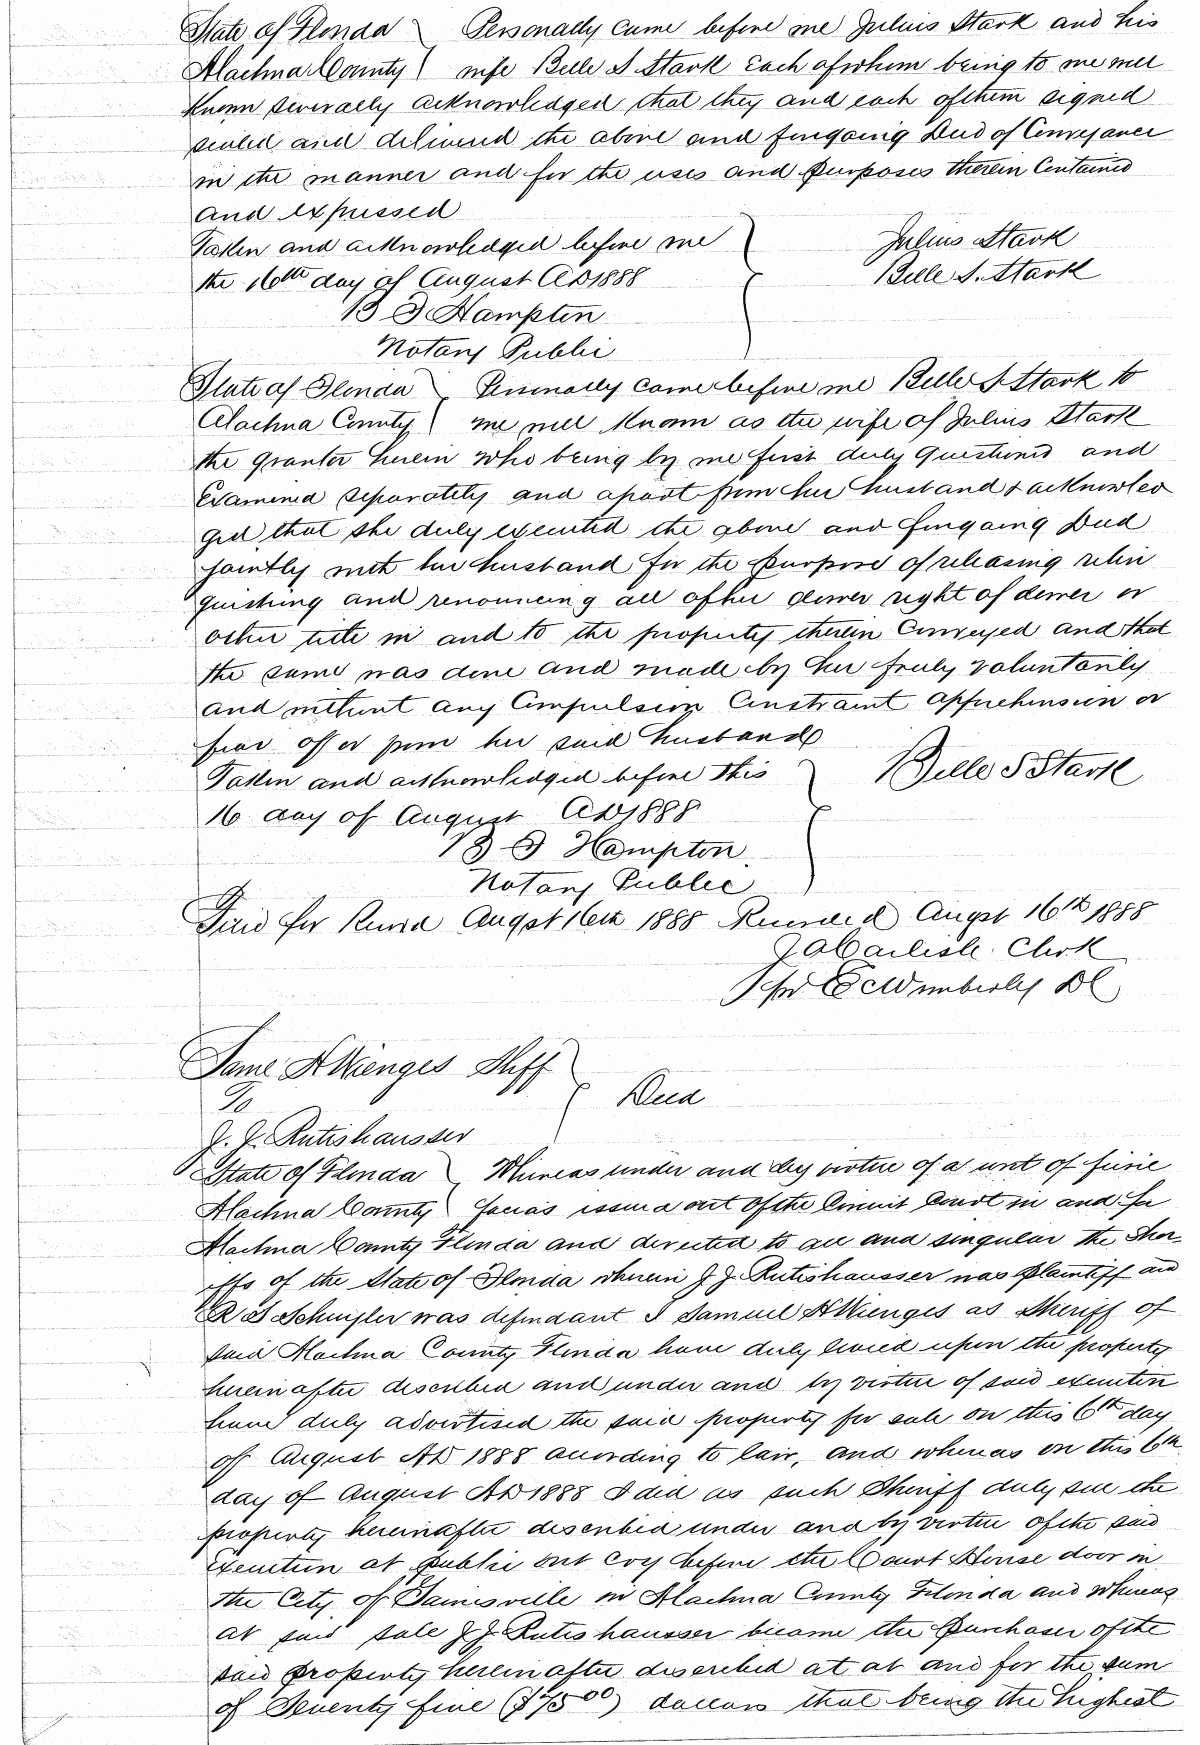 State of Florida } Personally came before me Julius Stark and his
Alachua County } wife Belle S Stark Each of whom being to me well
Known severally acknowledged that they and each of them signed
sealed and delivered the above and foregoing Deed of Conveyance
in the manner and for the uses and purposes therein Contained
and expressed
Taken and acknowledged before me } Julius Stark
the 16th day of August AD 1888 } Belle S. Stark
B F Hampton
Notary Public
State of Florida } Personally came before me Belle S Stark to
Alachua County } me well Known as the wife of Julius Stark
the grantor herein who being by me first duly questioned and
Examined separately and apart from her husband & acknowled
ged that she duly executed the above and foregoing Deed
jointly with her husband for the purpose of releasing relin
quishing and renouncing all of her dower right of dower or
other title in and to the property therein Conveyed and that
the same was done and made by her freely voluntarily
and without any Compulsion Constraint apprehension or
fear of or from her said husband
Taken and acknowledged before this } Belle S Stark
16 day of August AD 1888
B F Hampton
Notary Public
Filed for Record Augst 16th 1888 Recorded Augst 16th 1888
J A Carlisle. Clerk
per E C Wimberly DC
Same H Wienges Shff
To } Deed
J. J. Rutishausser
State of Florida } Whereas under and by virtue of a writ of fierie
Alachua County } facias issued out of the Circuit Court in and for
Alachua County Florida and directed to all and singular the Sher-
iffs of the State of Florida wherein J J Rutishausser was plaintiff and
R S Schuyler was defendant I Samuel H Wienges as Sheriff of
said Alachua County Florida have duly levied upon the property
hereinafter described and under and by virtue of said execution
have duly advertised the said property for sale on this 6th day
of August AD 1888 according to law, and whereas on this 6th
day of August AD 1888 I did as such Sheriff duly sell the
property hereinafter described under and by virtue of the said
Execution at public out cry before the Court House door in
the City of Gainesville in Alachua County Florida and whereas
at said sale J J Rutishausser became the purchaser of the
said property herein after described at at and for the sum
of Seventy five ($75.00) dollars that being the highest